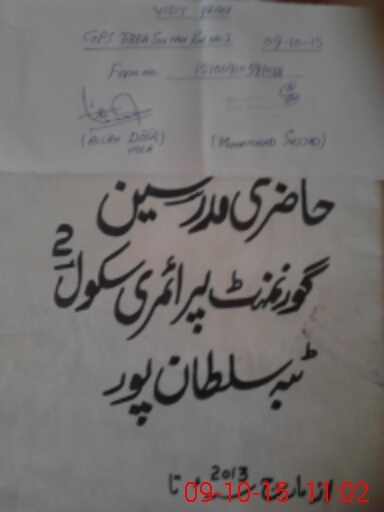 VISIT PROOF
GPS TIBBA SULTAN PUR NO.2 09-10-15
Form no.
(ALLAH DITTA) (MUHAMMAD SAJJAD)
حاضری مدرسین
گورنمنٹ پرائمری سکول 2
ٹبہ سلطان پور
از مارچ 2013 تا
09-10-15 11:02